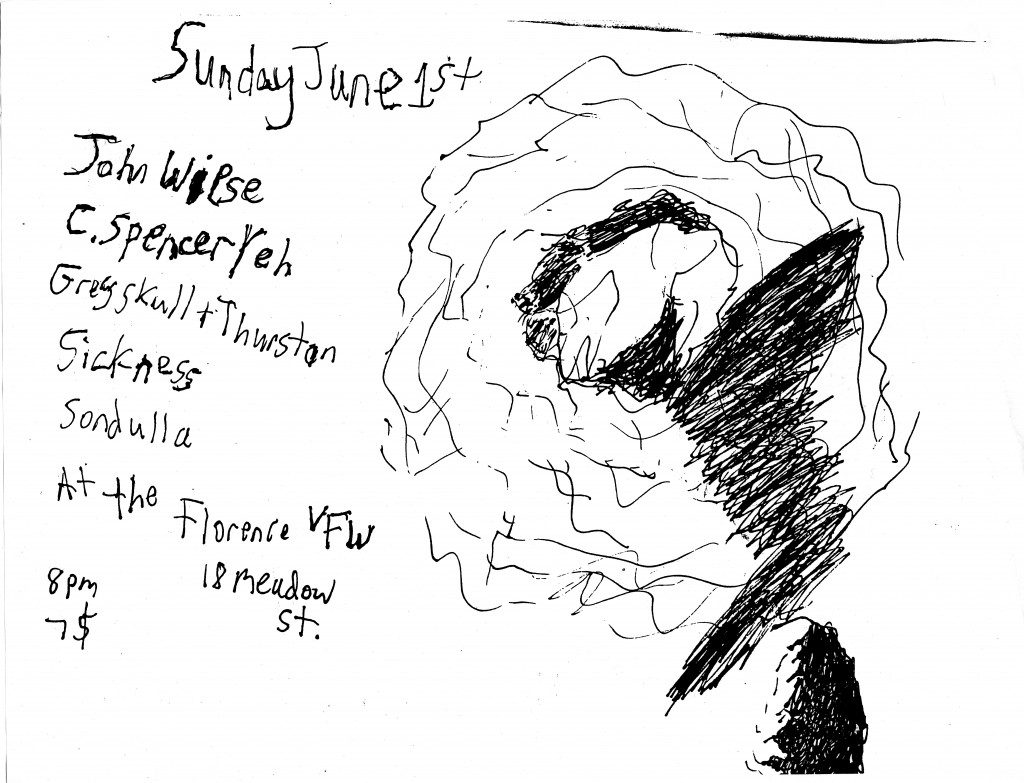 Sunday June 1st
John Wiese
C. Spencer Yeh
Gregsskull + Thurston
Sickness
Sondulla
At the Florence VFW
8pm 18 meadow
7$ st.